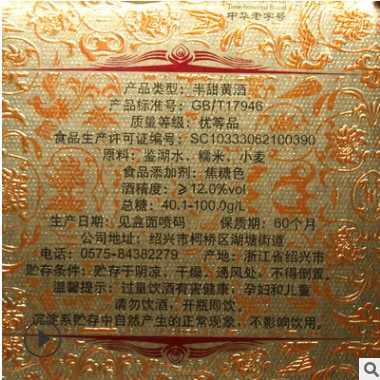 Time-honored Brand
中华老字号
产品类型：半甜黄酒
产品标准号：GB/T17946
质量等级：优等品
食品生产许可证编号：SC10333062100390
原料：鉴湖水、糯米、小麦
食品添加剂：焦糖色
酒精度：≥12.0%vol
总糖：40.1-100.0g/L
生产日期：见盒面喷码 保质期：60个月
公司地址：绍兴市柯桥区湖塘街道
电话：0575-84382279 产地：浙江省绍兴市
贮存条件：贮存于阴凉、干燥、通风处，不得倒置。
温馨提示：过量饮酒有害健康，孕妇和儿童
请勿饮酒，开瓶即饮。
沉淀系贮存中自然产生的正常现象，不影响饮用。